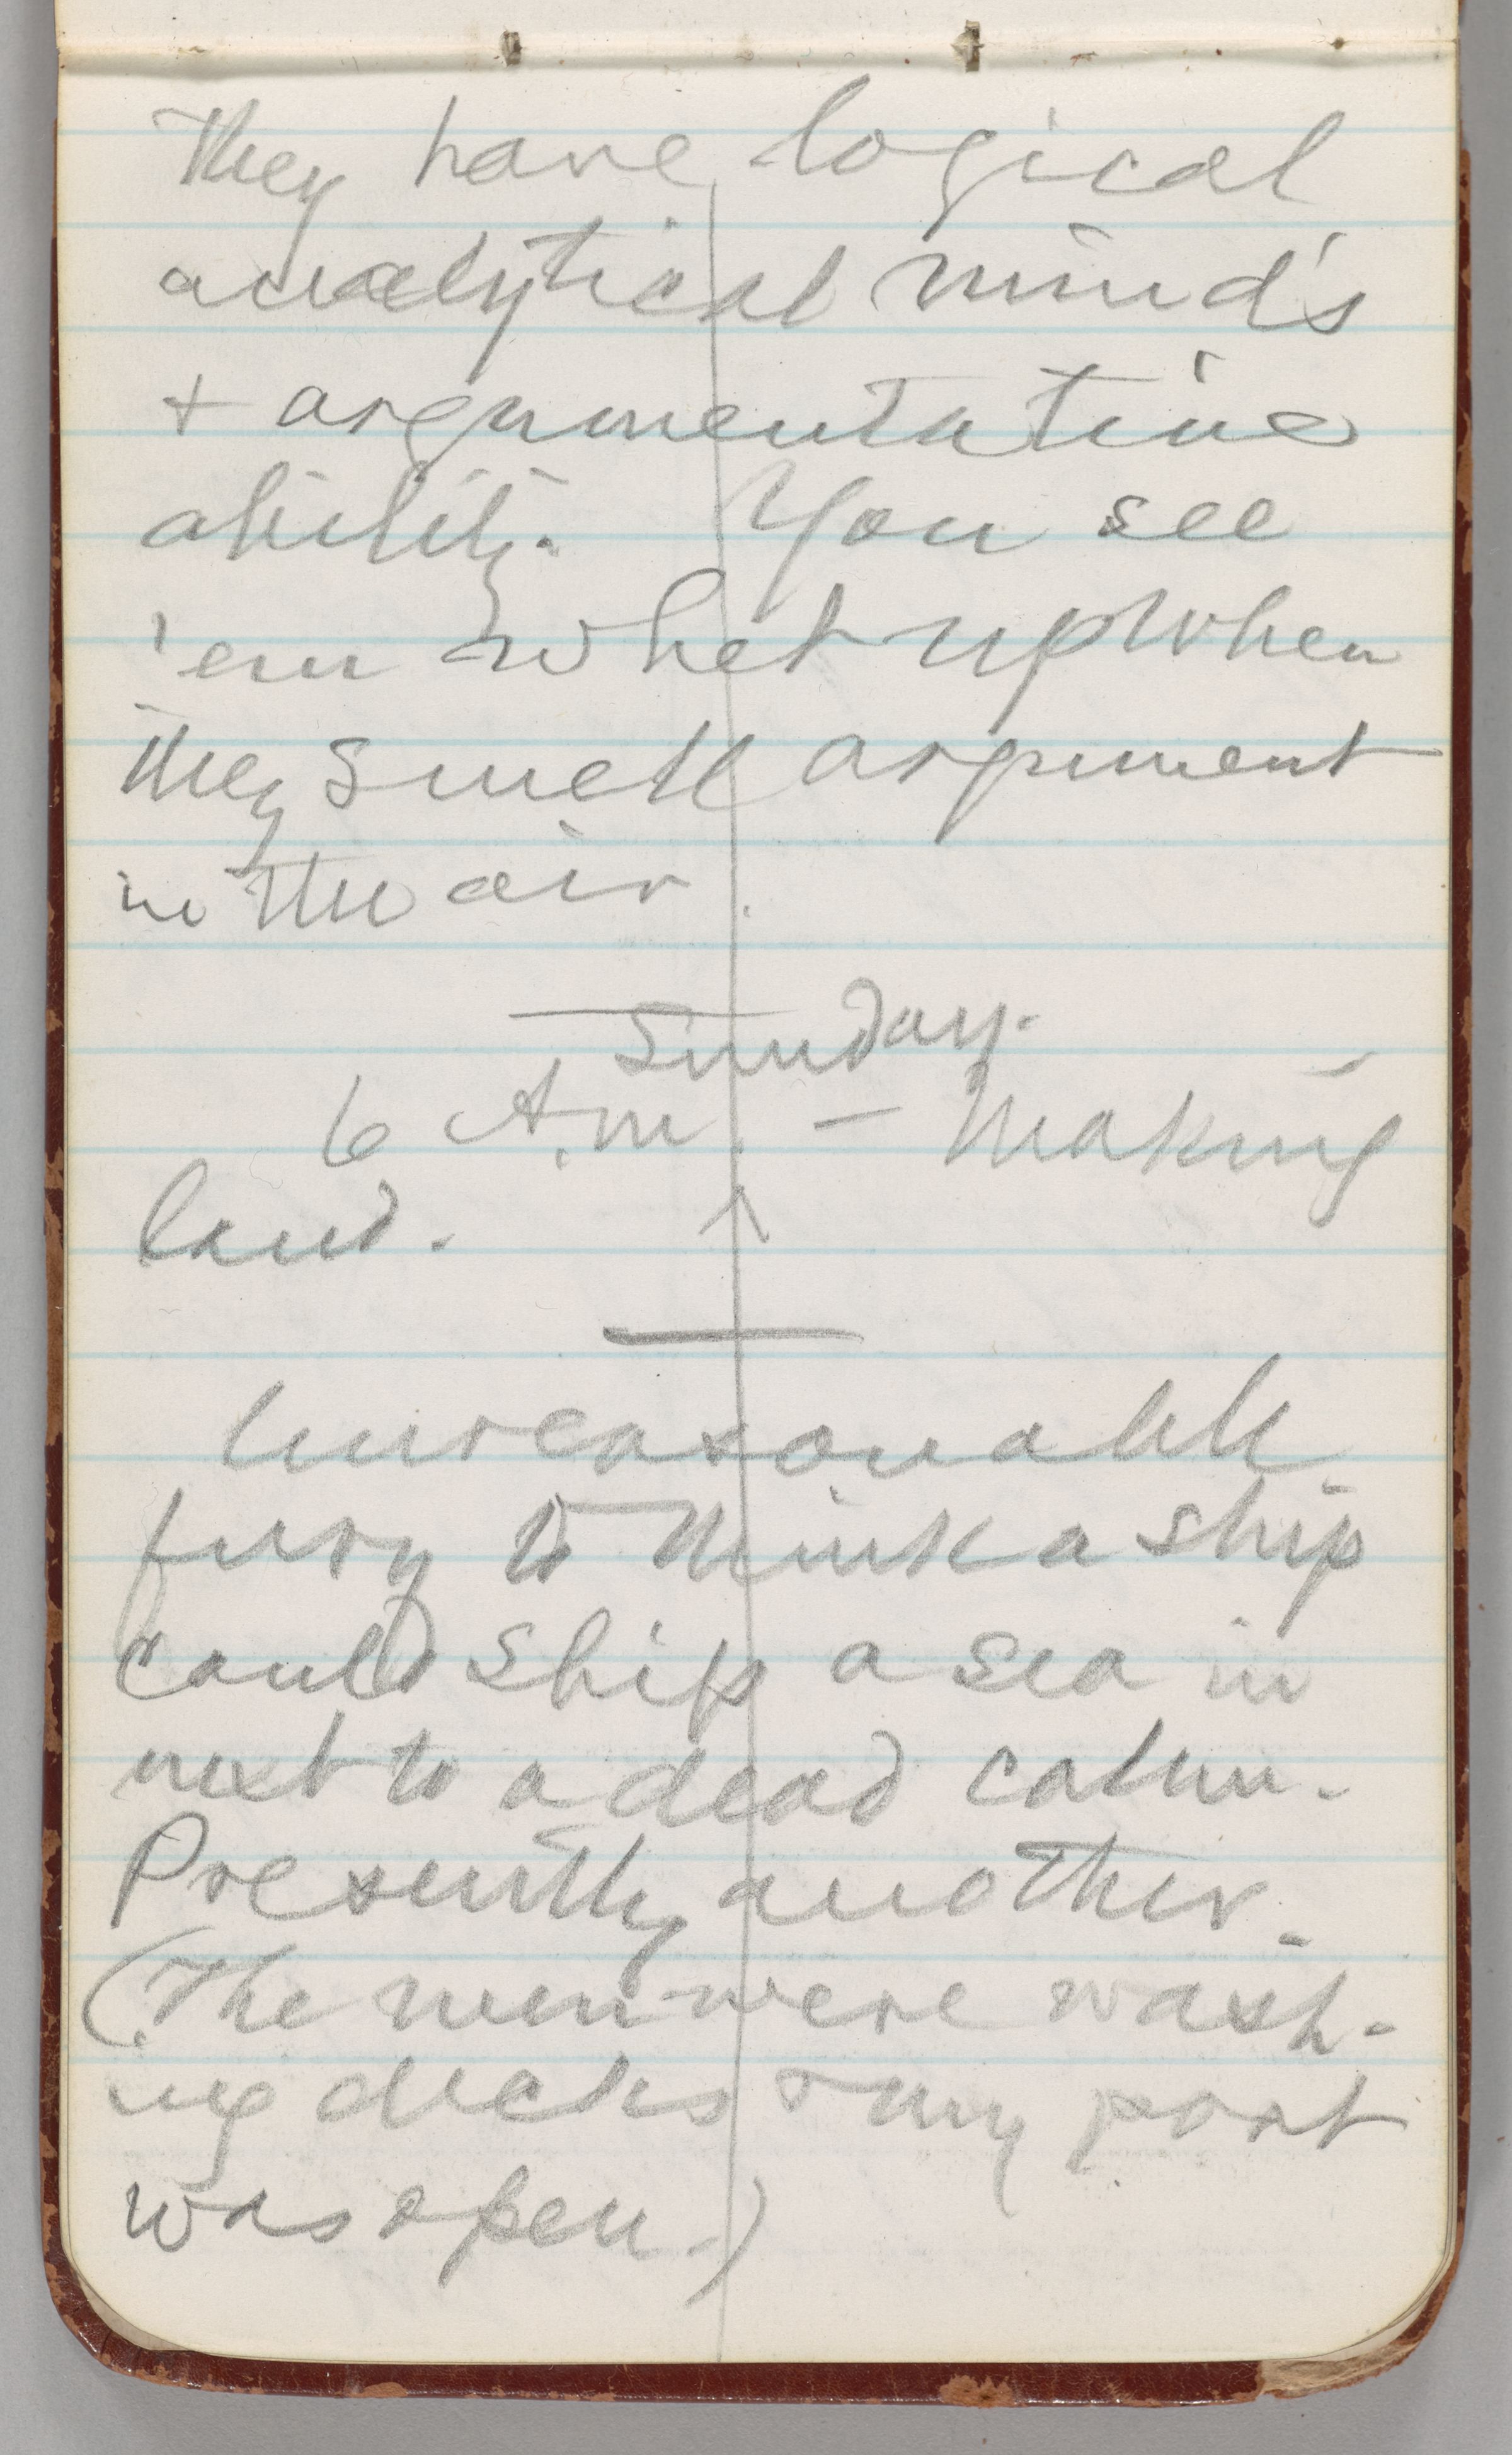 They have logical
analytical mind's
+ argumentative
ability. You see
'em whet up when
they smell argument
in the air.
Sunday.
6 A.m. — Making
land.
Unreasonable
fury to think a ship
could ship a sea in
next to a dead calm.
Presently another.
(The men were wash-
ing decks & my port
was open.)